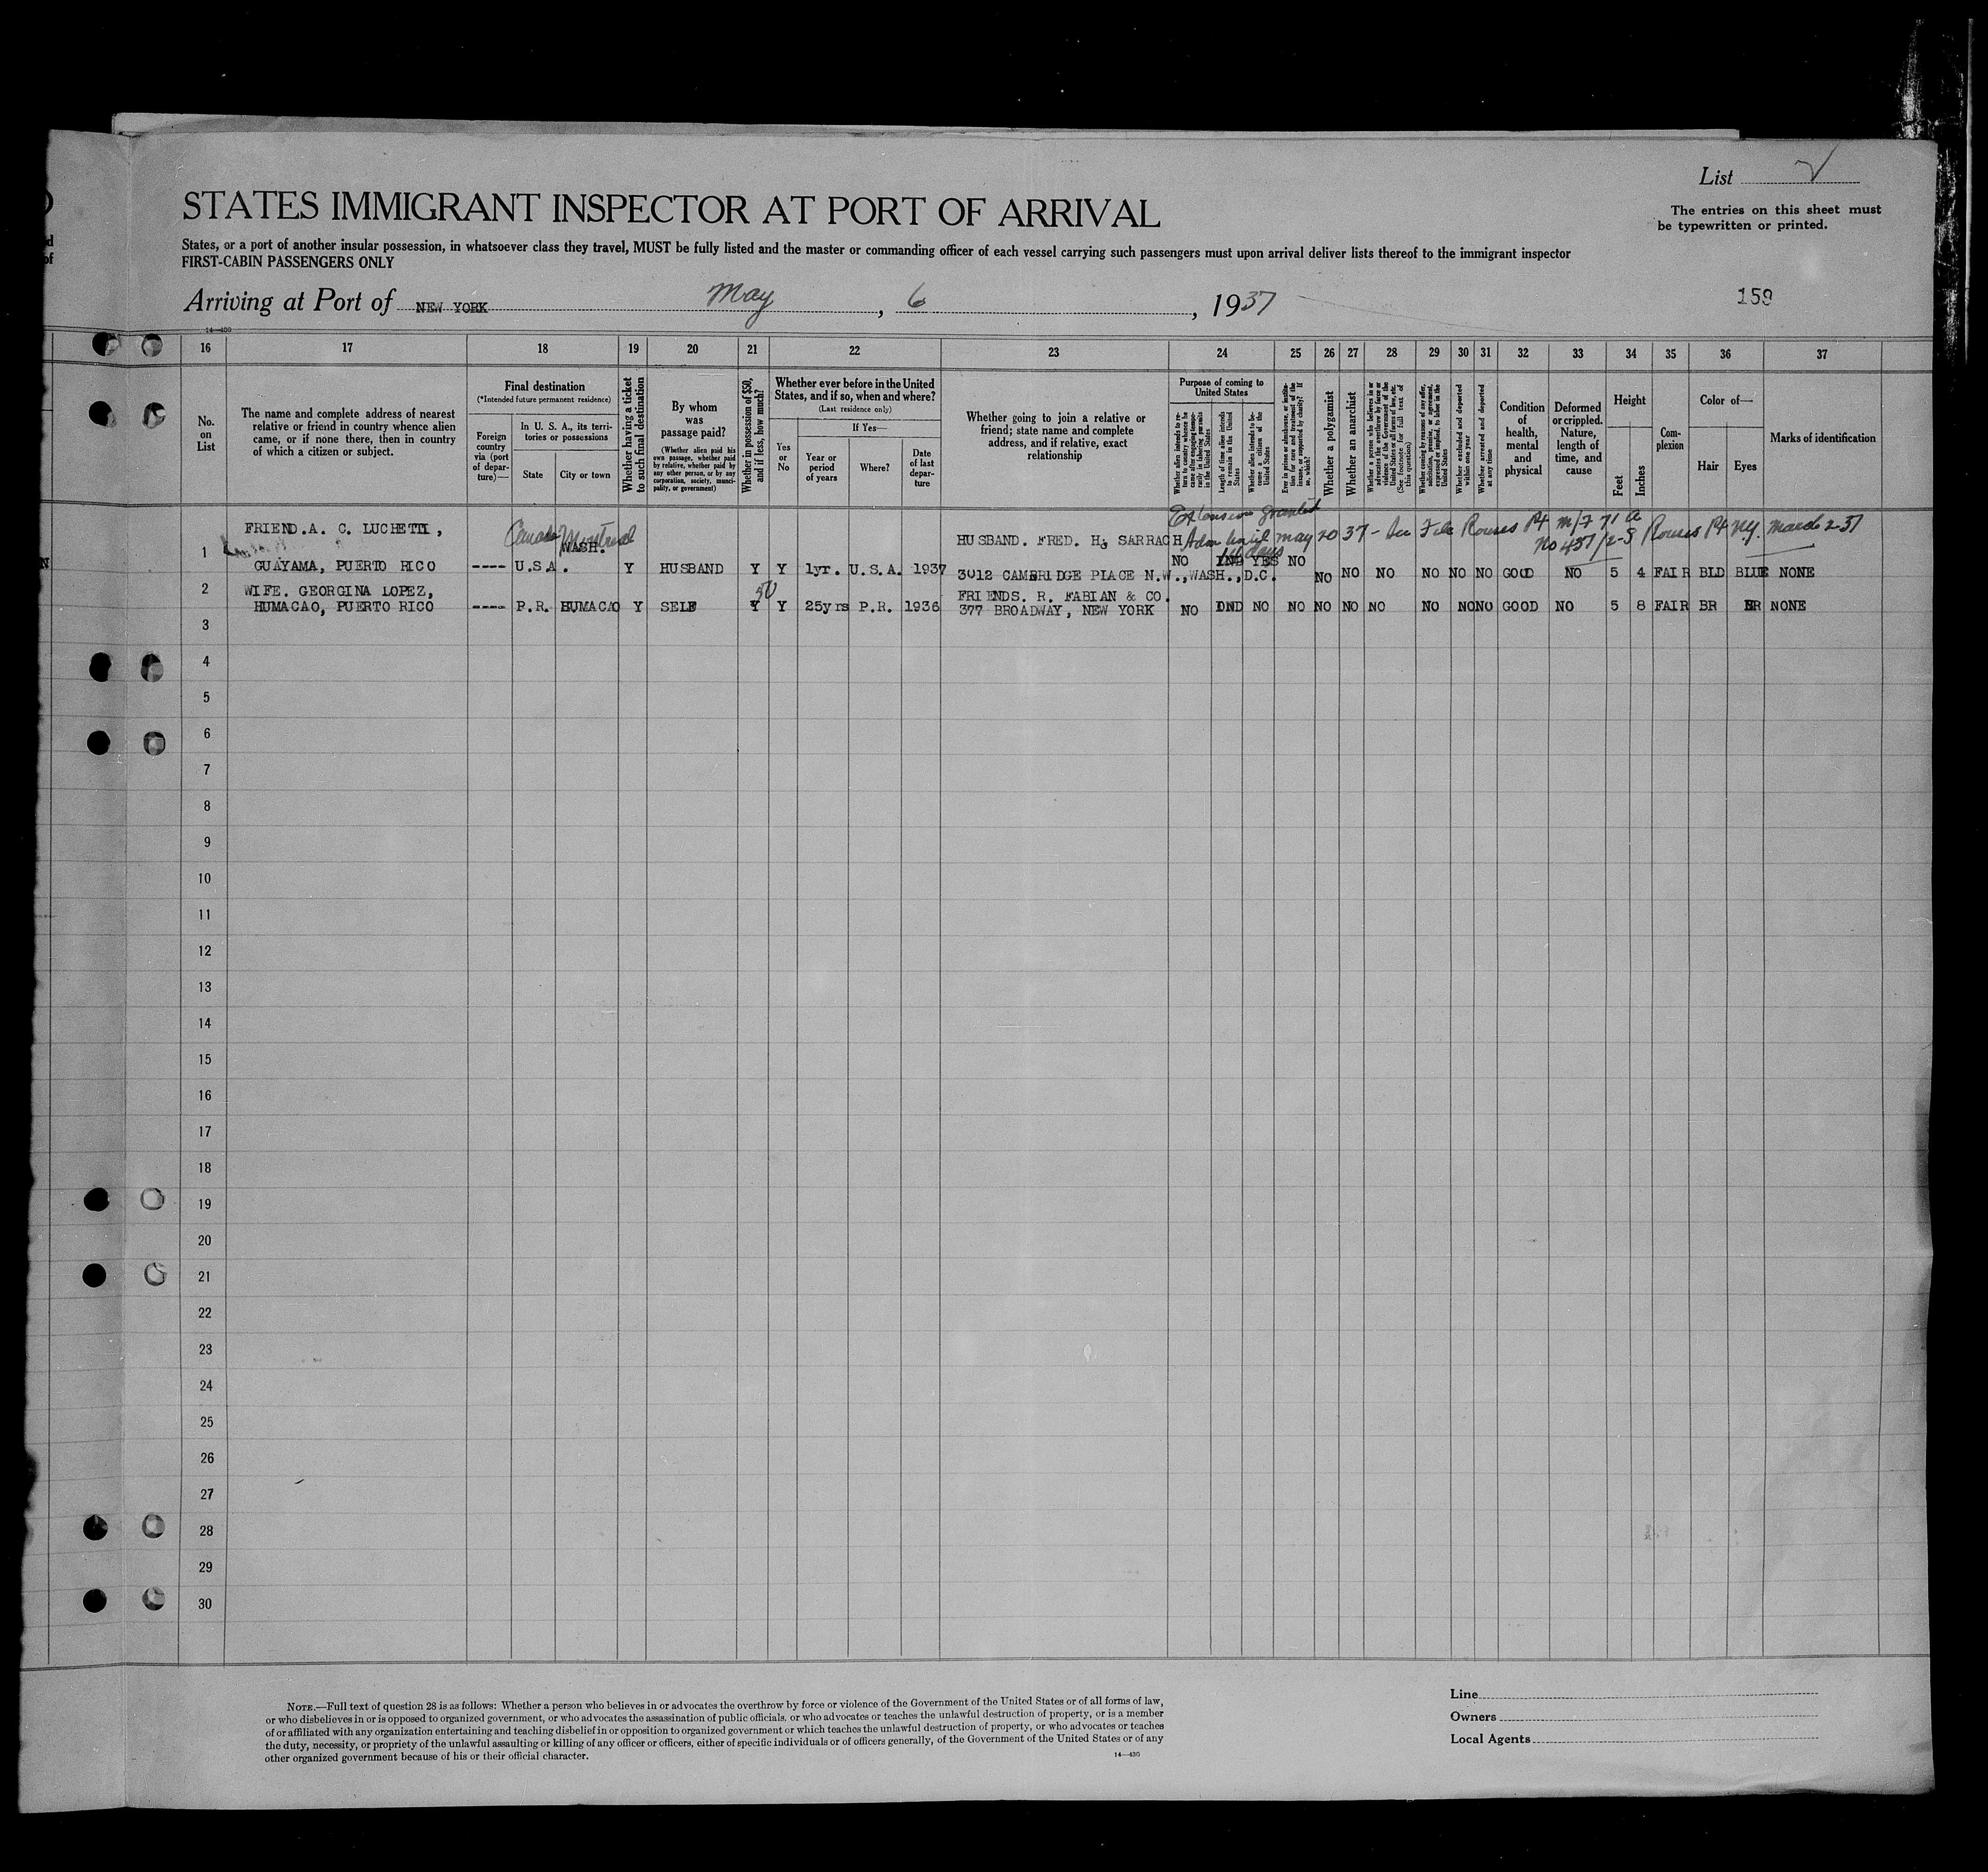 List 2
STATES IMMIGRANT INSPECTOR AT PORT OF ARRIVAL
The entries on this sheet must
be typewritten or printed.
States, or a port of another insular possession, in whatsoever class they travel, MUST be fully listed and the master or commanding officer of each vessel carrying such passengers must upon arrival deliver lists thereof to the immigrant inspector
FIRST-CABIN PASSENGERS ONLY
Arriving at Port of NEW YORK May, 6, 1937
159
14—430
16 17 18 19 20 21 22 23 24 25 26 27 28 29 30 31 32 33 34 35 36 37
No.
on
List
The name and complete address of nearest
relative or friend in country whence alien
came, or if none there, then in country
of which a citizen or subject.
Final destination
(*Intended future permanent residence)
Foreign
country
via (port
of depar-
ture)—
In U. S. A., its terri-
tories or possessions
State
City or town
Whether having a ticket
to such final destination
By whom
was
passage paid?
(Whether alien paid his
own passage, whether paid
by relative, whether paid by
any other person, or by any
corporation, society, munici-
pality, or government)
Whether in possession of $50,
and if less, how much?
Whether ever before in the United
States, and if so, when and where?
(Last residence only)
Yes
or
No
If Yes—
Year or
period
of years
Where?
Date
of last
depar-
ture
Whether going to join a relative or
friend; state name and complete
address, and if relative, exact
relationship
Purpose of coming to
United States
Whether alien intends to re-
turn to country whence he
came after engaging tempo-
rarily in laboring pursuits
in the United States
Length of time alien intends
to remain in the United
States
Whether alien intends to be-
come a citizen of the
United States
Ever in prison or almshouse, or institu-
tion for care and treatment of the
insane, or supported by charity? If
so, which?
Whether a polygamist
Whether an anarchist
Whether a person who believes in or
advocates the overthrow by force or
violence of the Government of the
United States or all forms of law, etc.
(See footnote for full text of
this question)
Whether coming by reason of any offer,
solicitation, promise, or agreement,
expressed or implied, to labor in the
United States
Whether excluded and deported
within one year
Whether arrested and deported
at any time
Condition
of
health,
mental
and
physical
Deformed
or crippled.
Nature,
length of
time, and
cause
Height
Feet
Inches
Com-
plexion
Color of—
Hair
Eyes
Marks of identification
Extension granted
Adm until May 20 37 - See File Rouses Pt M/7 71 A
No 437/2-S Rouses Pt NY. March 2-37
1 FRIEND.A. C. LUCHETTI, Canada Montreal WASH. HUSBAND. FRED. H. SARRACH
GUAYAMA, PUERTO RICO ---- U.S.A. Y HUSBAND Y Y 1yr. U.S.A. 1937 3012 CAMBRIDGE PLACE N.W.,WASH.,D.C. NO IND YES NO NO NO NO NO NO NO GOOD NO 5 4 FAIR BLD BLUE NONE
days
2 WIFE. GEORGINA LOPEZ, 50 FRIENDS. R. FABIAN & CO.
HUMACAO, PUERTO RICO ---- P.R. HUMACAO Y SELF Y Y 25yrs P.R. 1936 377 BROADWAY, NEW YORK NO IND NO NO NO NO NO NO NO NO GOOD NO 5 8 FAIR BR BR NONE
3
4
5
6
7
8
9
10
11
12
13
14
15
16
17
18
19
20
21
22
23
24
25
26
27
28
29
30
NOTE.—Full text of question 28 is as follows: Whether a person who believes in or advocates the overthrow by force or violence of the Government of the United States or of all forms of law,
or who disbelieves in or is opposed to organized government, or who advocates the assassination of public officials, or who advocates or teaches the unlawful destruction of property, or is a member
of or affiliated with any organization entertaining and teaching disbelief in or opposition to organized government or which teaches the unlawful destruction of property, or who advocates or teaches
the duty, necessity, or propriety of the unlawful assaulting or killing of any officer or officers, either of specific individuals or of officers generally, of the Government of the United States or of any
other organized government because of his or their official character.
14—430
Line
Owners
Local Agents